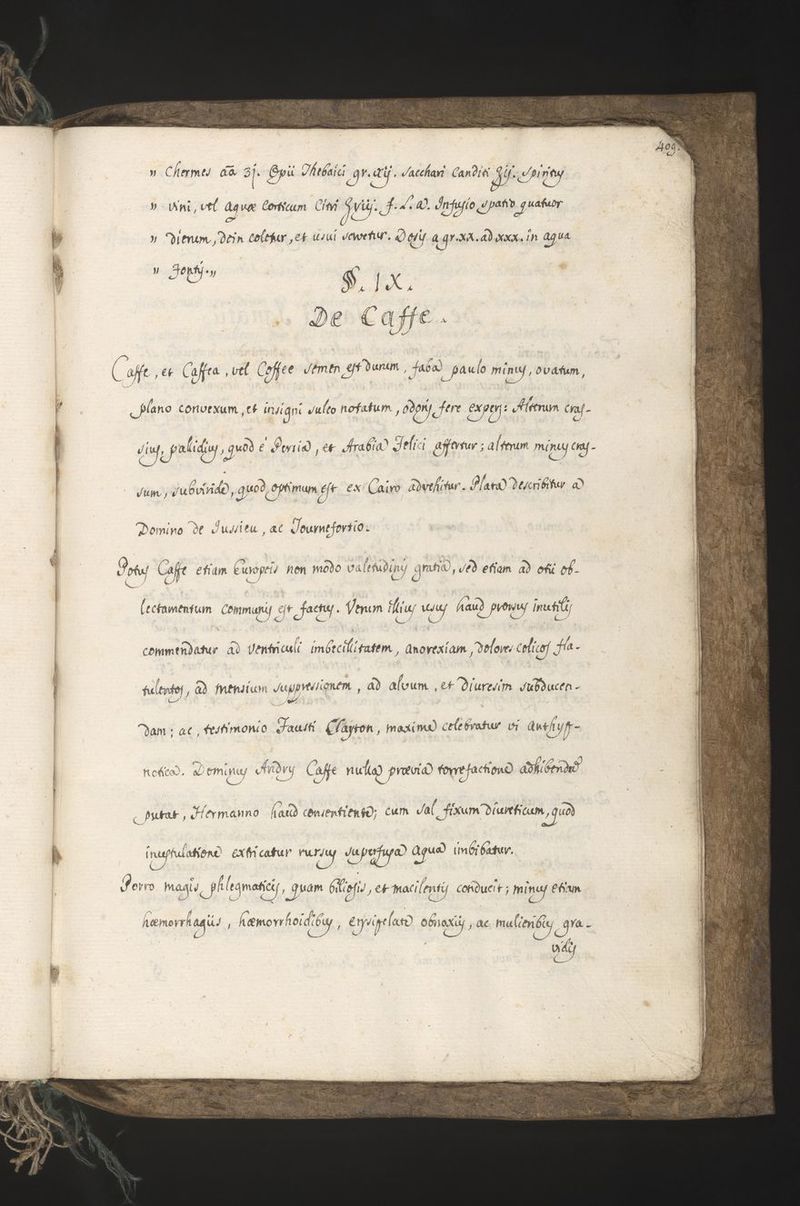 409.
" Chermes aã ʒj. Opii Thebaici gr. xij. Sacchari Candiți ℥ij. Spiritus
" vini, vel aquæ Corticum Citri ℥viij. f. L. a. Infusio spatio quatuor
" dierum, dein coletur, et usui servetur. Dosis a gr. xx. ad xxx. in aqua
" Fontis."
§. IX.
De Caffe.
Caffe, et Caffea, vel Coffee semen est durum, faba paulo minus, ovatum,
plano convexum, et insigni sulco notatum, odoris fere expers: Alterum cras-
sius, palidius, quod è Persia, et Arabia Felici affertur; alterum minus cras-
sum, subviride, quod optimum est ex Cairo advehitur. Planta describitur a
Domino de Jussieu, ac Tournefortio.
Potus Caffe etiam Europeis non modo valetudinis gratia, sed etiam ad otii ob-
lectamentum communis est factus. Verum illius usus haud prorsus inutilis
commendatur ad Ventriculi imbecillitatem, anorexiam, dolores colicos fla-
tulentos, ad mensium suppressionem, ad alvum, et diuresim subducen-
dam; ac, testimonio Fausti Clayton, maxima celebratur vi anthyp-
notica. Dominus Andry Caffe nulla prævia torrefactione adhibendū
putat, Hermanno haud consentiente; cum sal fixum diureticum, quod
inustulatione extricatur rursus superfusa aqua imbibatur.
Porro magis phlegmaticis, quam biliosis, et macilentis conducit; minus etiam
hæmorrhagiis, hæmorrhoidibus, erysipelate obnoxiis, ac mulieribus gra-
vidis